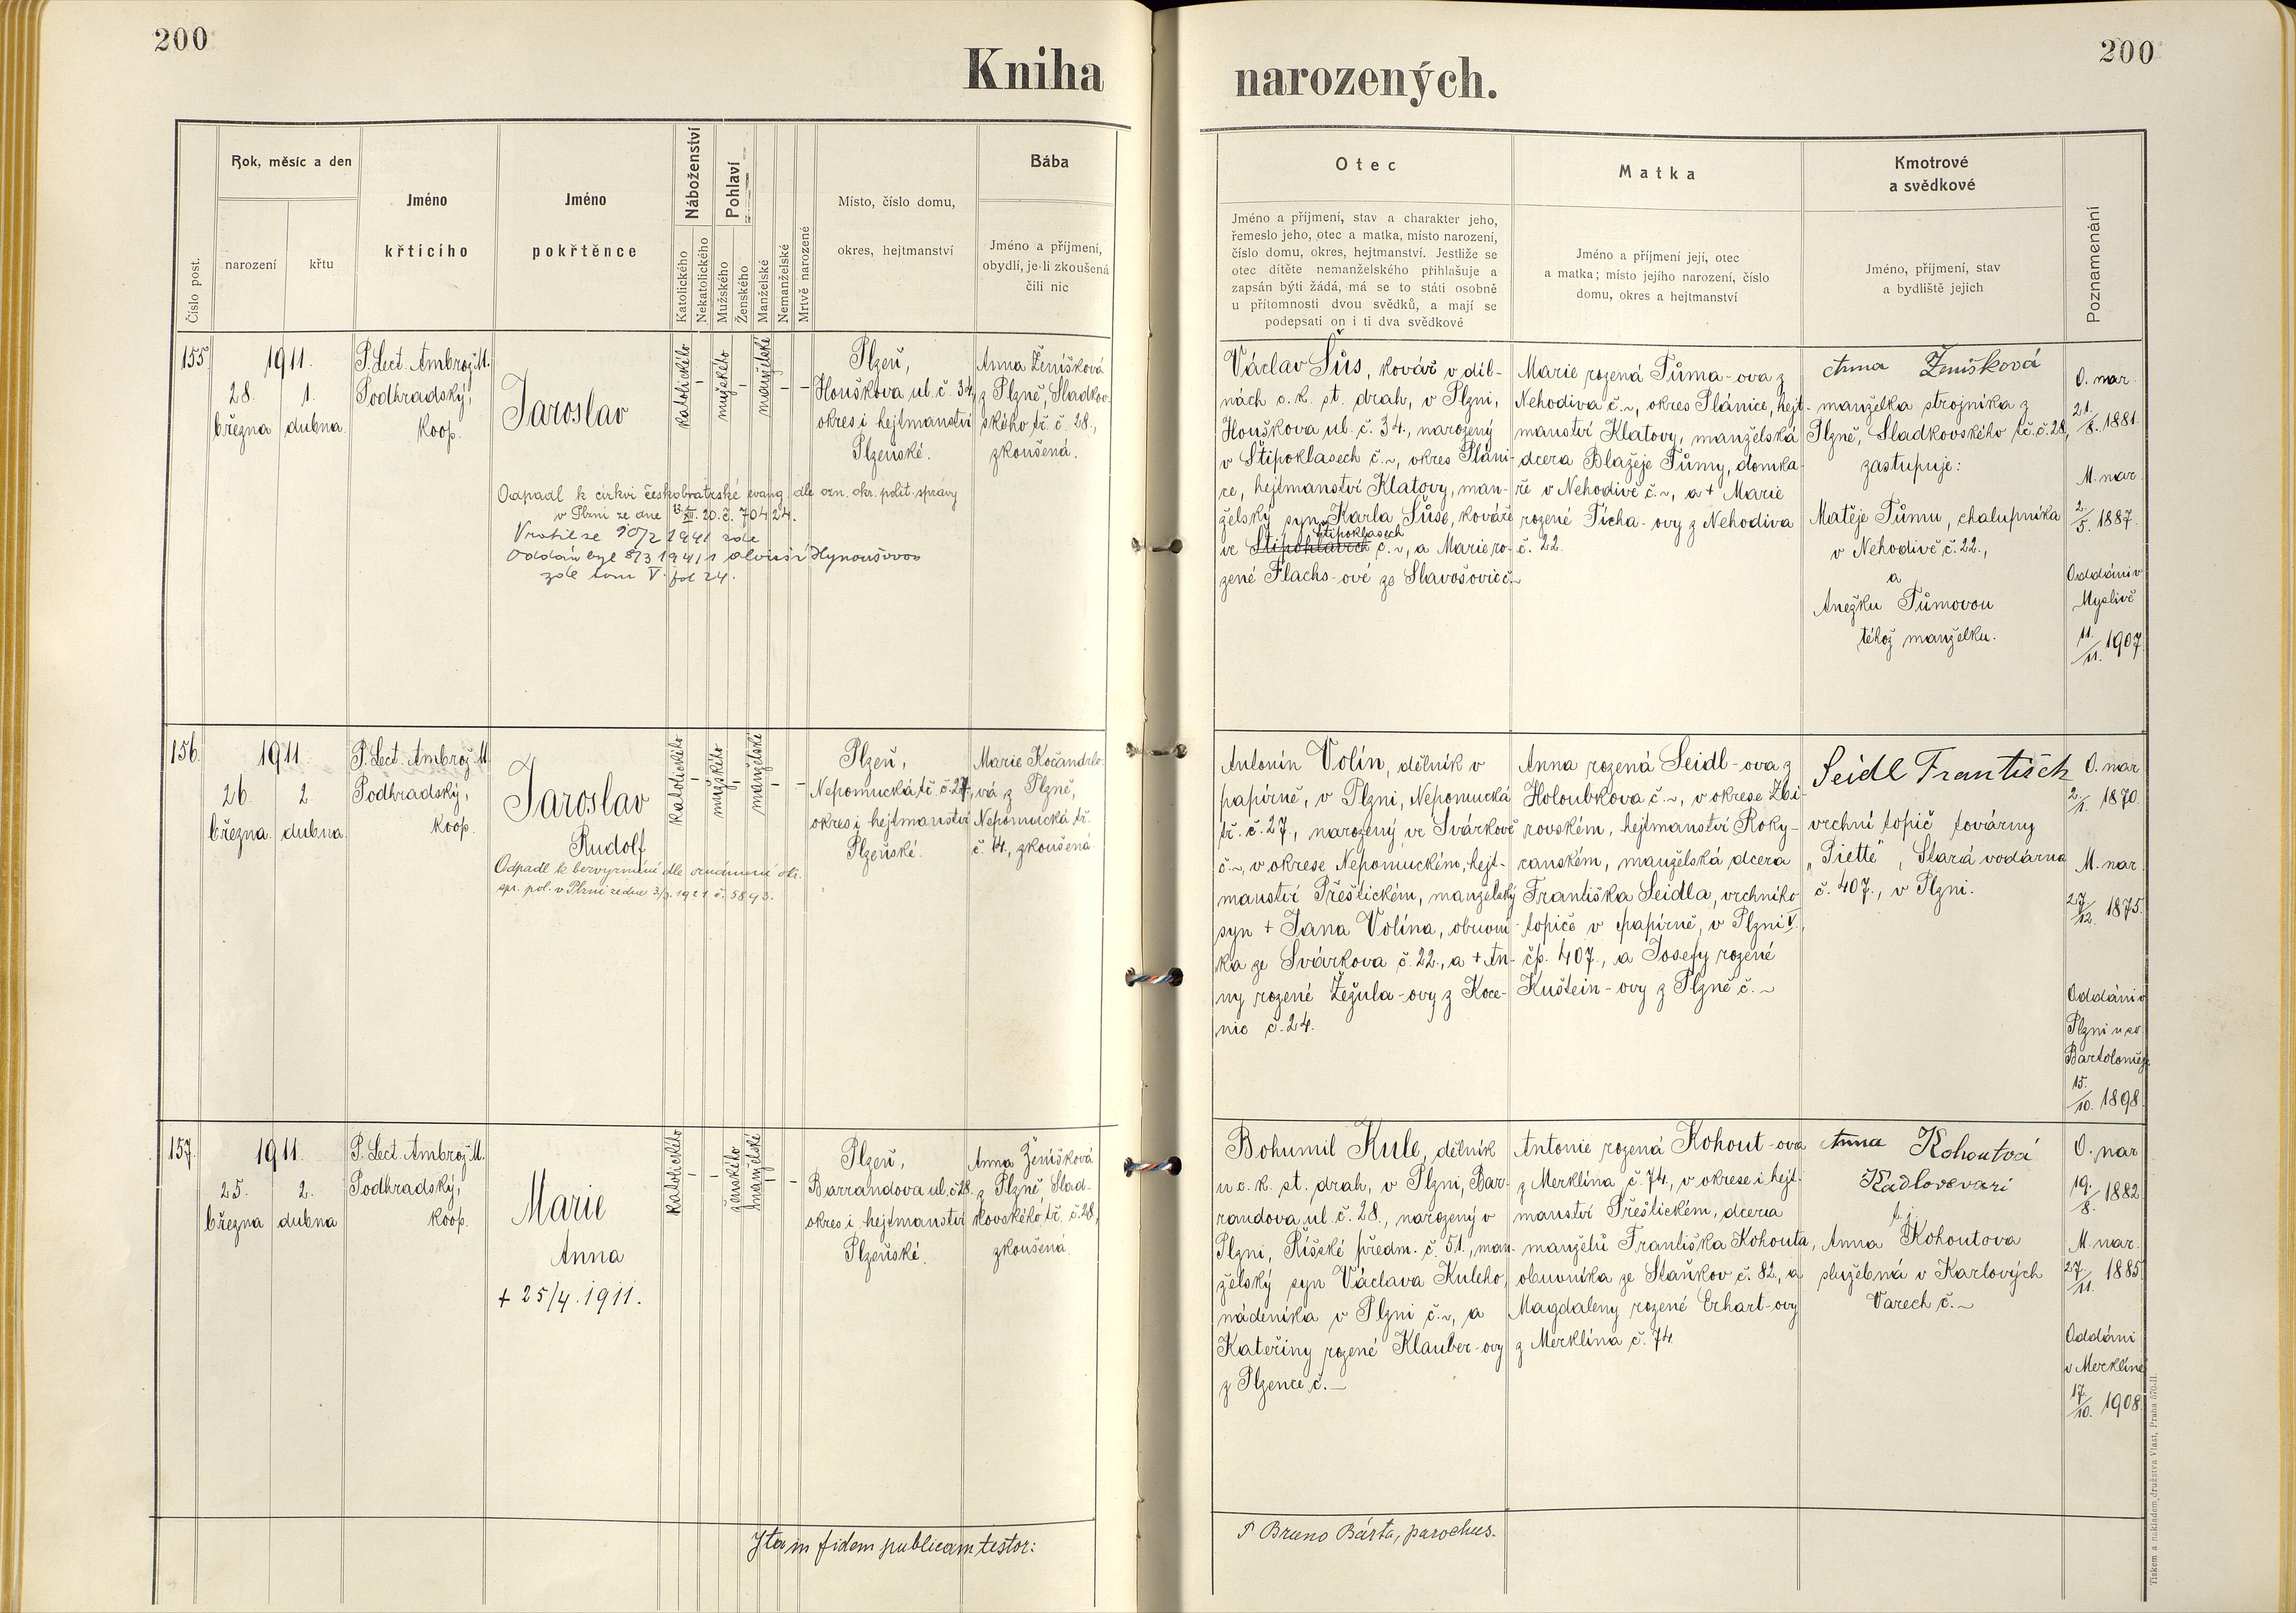 200
Kniha
Rok, měsíc a den
Číslo post.
narození
křtu
Jméno
křtícího
Jméno
pokřtěnce
Náboženství
Katolického
Nekatolického
Pohlaví
Mužského
Ženského
Manželské
Nemanželské
Mrtvě narozené
Místo, číslo domu,
okres, hejtmanství
Bába
Jméno a příjmení,
obydlí, je-li zkoušená
čili nic
155.
1911.
28. 1.
března dubna.
P. Lect. Ambrož M.
Podhradský,
koop.
Jaroslav
katolického
-
mužského
-
manželské
-
-
Plzeň,
Houškova ul. č. 34,
okres i hejtmanství
Plzeňské.
Anna Ženíšková
z Plzně, Sladkov-
ského tř. č. 28.,
zkoušená.
Odpadl k církvi českobratrské evang. dle ozn. okr. polit. správy
v Plzni ze dne 13. XII. 20. č. 70424.
Vrátil se 20/2 1941 zde
Oddán byl 8/3 1941 s
zde tom V. fol 24.
156.
1911.
26. 2.
března. dubna.
P. Lect. Ambrož M.
Podhradský,
koop.
Jaroslav
Rudolf
katolického
-
mužského
-
manželské
-
-
Plzeň,
Nepomucká tř. č. 27,
okres i hejtmanství
Plzeňské.
Marie Kočandrlo-
vá z Plzně,
Nepomucká tř.
č. 14., zkoušená.
Odpadl k bezvyznání dle oznámení okr.
spr. pol. v Plzni ze dne 3/3. 1921 č. 5893.
157.
1911.
25. 2.
března dubna
P. Lect. Ambrož M.
Podhradský,
koop.
Marie
Anna
+ 25/4. 1911.
katolického
-
-
ženského
manželské
-
-
Plzeň,
Barrandova ul. č. 28.
okres i hejtmanství
Plzeňské.
Anna Ženíšková
z Plzně, Slad-
kovského tř. č. 28,
zkoušená.
Ita in fidem publicam testor:
200
narozených.
Otec
Jméno a příjmení, stav a charakter jeho,
řemeslo jeho, otec a matka, místo narození,
číslo domu, okres, hejtmanství. Jestliže se
otec dítěte nemanželského přihlašuje a
zapsán býti žádá, má se to státi osobně
u přítomnosti dvou svědků, a mají se
podepsati on i ti dva svědkové
Matka
Jméno a příjmení její, otec
a matka; místo jejího narození, číslo
domu, okres a hejtmanství
Kmotrové
a svědkové
Jméno, příjmení, stav
a bydliště jejich
Poznamenání
Václav Šůs, kovář v díl-
nách c. k. st. drah, v Plzni,
Houškova ul. č. 34., narozený
v Štipoklasech č. ~, okres Pláni-
ce, hejtmanství Klatovy, man-
želský syn Karla Šůse, kováře
Štipoklasech
ve č. ~, a Marie ro-
zené Flachs-ové ze Slavošovic č. ~
Marie rozená Tůma-ova z
Nehodiva č. ~, okres Plánice, hejt-
manství Klatovy, manželská
dcera Blažeje Tůmy, domka-
ře v Nehodivě č. ~, a + Marie
rozené Tícha-ovy z Nehodiva
č. 22.
Anna Ženíšková
manželka strojníka z
Plzně, Sladkovského tř. č. 28,
zastupuje:
Matěje Tůmu, chalupníka
v Nehodivě č. 22.,
a
Anežku Tůmovou
téhož manželku.
O. nar.
21./8. 1881.
M. nar.
2./5. 1887.
Oddáni v
Myslivě
11./11. 1907.
Antonín Volín, dělník v
papírně, v Plzni, Nepomucká
tř. č. 27., narozený ve Svárkově
č. ~, v okrese Nepomuckém, hejt-
manství Přeštickém, manželský
syn + Jana Volína, obuvní-
ka ze Svárkova č. 22., a + An-
ny rozené Žežula-ovy z Koce-
nic č. 24.
Anna rozená Seidl-ova z
Holoubkova č. ~, v okrese Zbi-
rovském, hejtmanství Roky-
canském, manželská dcera
Františka Seidla, vrchního
topiče v papírně, v Plzni V.,
čp. 407., a Josefy rozené
Kuštein-ovy z Plzně č. ~
Seidl František
vrchní topič továrny
„Piette", Stará vodárna
č. 407., v Plzni.
O. nar.
2./1. 1870.
M. nar.
27./12. 1875.
Oddáni v
Plzni u sv.
Bartoloměje
15./10. 1898.
Bohumil Kule, dělník
u c. k. st. drah, v Plzni, Bar-
randova ul. č. 28., narozený v
Plzni, Říšské předm. č. 51., man-
želský syn Václava Kuleho,
nádeníka v Plzni č. ~, a
Kateřiny rozené Klauber-ovy
z Plzence č. —
Antonie rozená Kohout-ova
z Merklína č. 74., v okrese i hejt-
manství Přeštickém, dcera
manželů Františka Kohouta,
obuvníka ze Staňkov č. 82., a
Magdaleny rozené Erhart-ovy
z Merklína č. 74.
Anna Kohoutvá
t. j.
Anna Kohoutova
služebná v Karlových
Varech č. ~
O. nar.
19./8. 1882.
M. nar.
27./11. 1885.
Oddáni
v Merklíně
17./10. 1908.
P Bruno Bárta, parochus.
Tiskem a nákladem družstva Vlast, Praha 570-II.